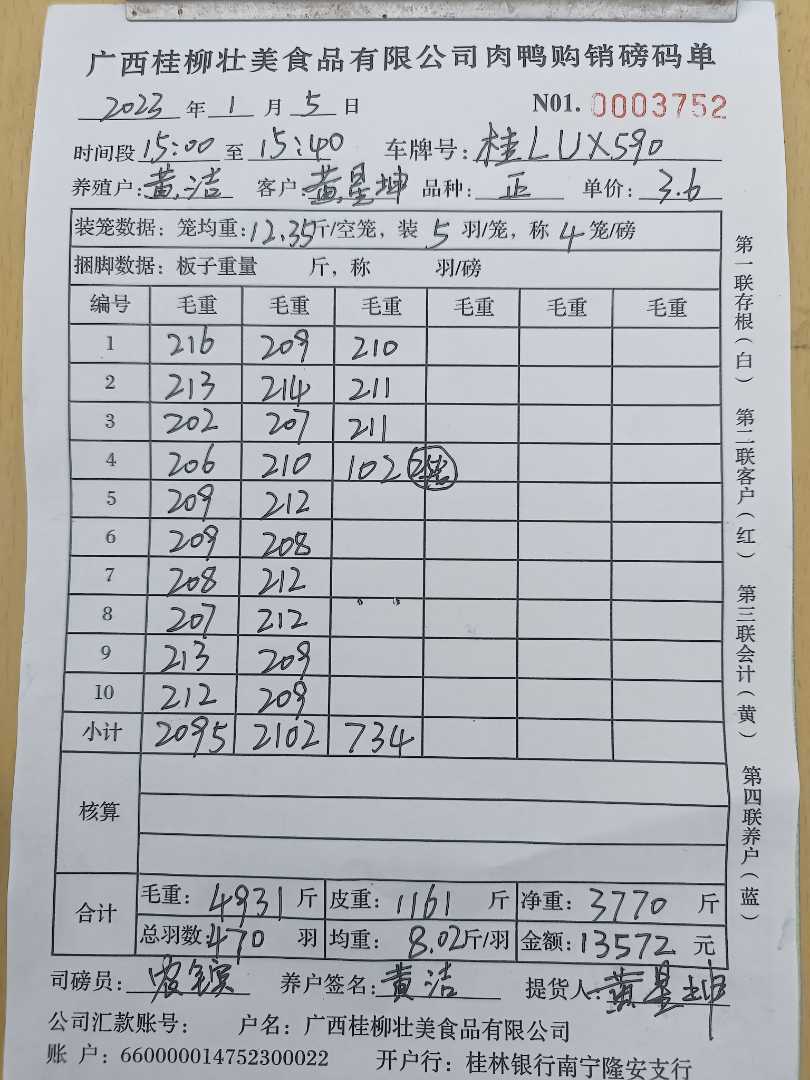 广西桂柳壮美食品有限公司肉鸭购销磅码单
2023 年 1 月 5 日 N01. 0003752
时间段 15:00 至 15:40 车牌号: 桂LUX590
养殖户: 黄洁 客户: 黄星坤 品种: 正 单价: 3.6
装笼数据: 笼均重: 12.35斤/空笼, 装 5 羽/笼, 称 4 笼/磅
捆脚数据: 板子重量 斤, 称 羽/磅
编号 毛重 毛重 毛重 毛重 毛重 毛重
1 216 209 210
2 213 214 211
3 202 207 211
4 206 210 102
5 209 212
6 209 208
7 208 212
8 207 212
9 213 209
10 212 209
小计 2095 2102 734
核算
合计
毛重: 4931 斤 皮重: 1161 斤 净重: 3770 斤
总羽数: 470 羽 均重: 8.02斤/羽 金额: 13572 元
司磅员: 养户签名: 黄洁 提货人: 黄星坤
公司汇款账号: 户名: 广西桂柳壮美食品有限公司
账户: 660000014752300022 开户行: 桂林银行南宁隆安支行
第一联存根(白)
第二联客户(红)
第三联会计(黄)
第四联养户(蓝)